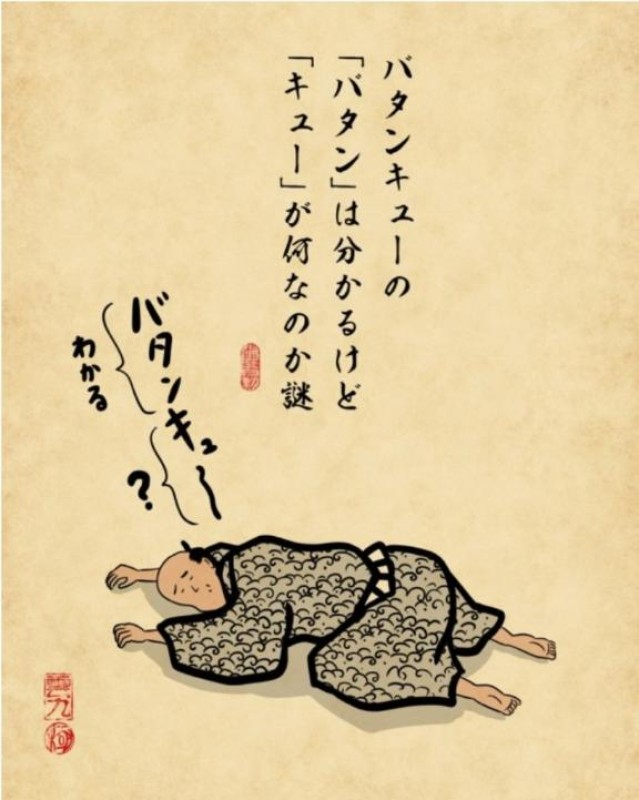 バタンキューの
「バタン」は分かるけど
「キュー」が何なのか謎
バタンキュー
わかる
？